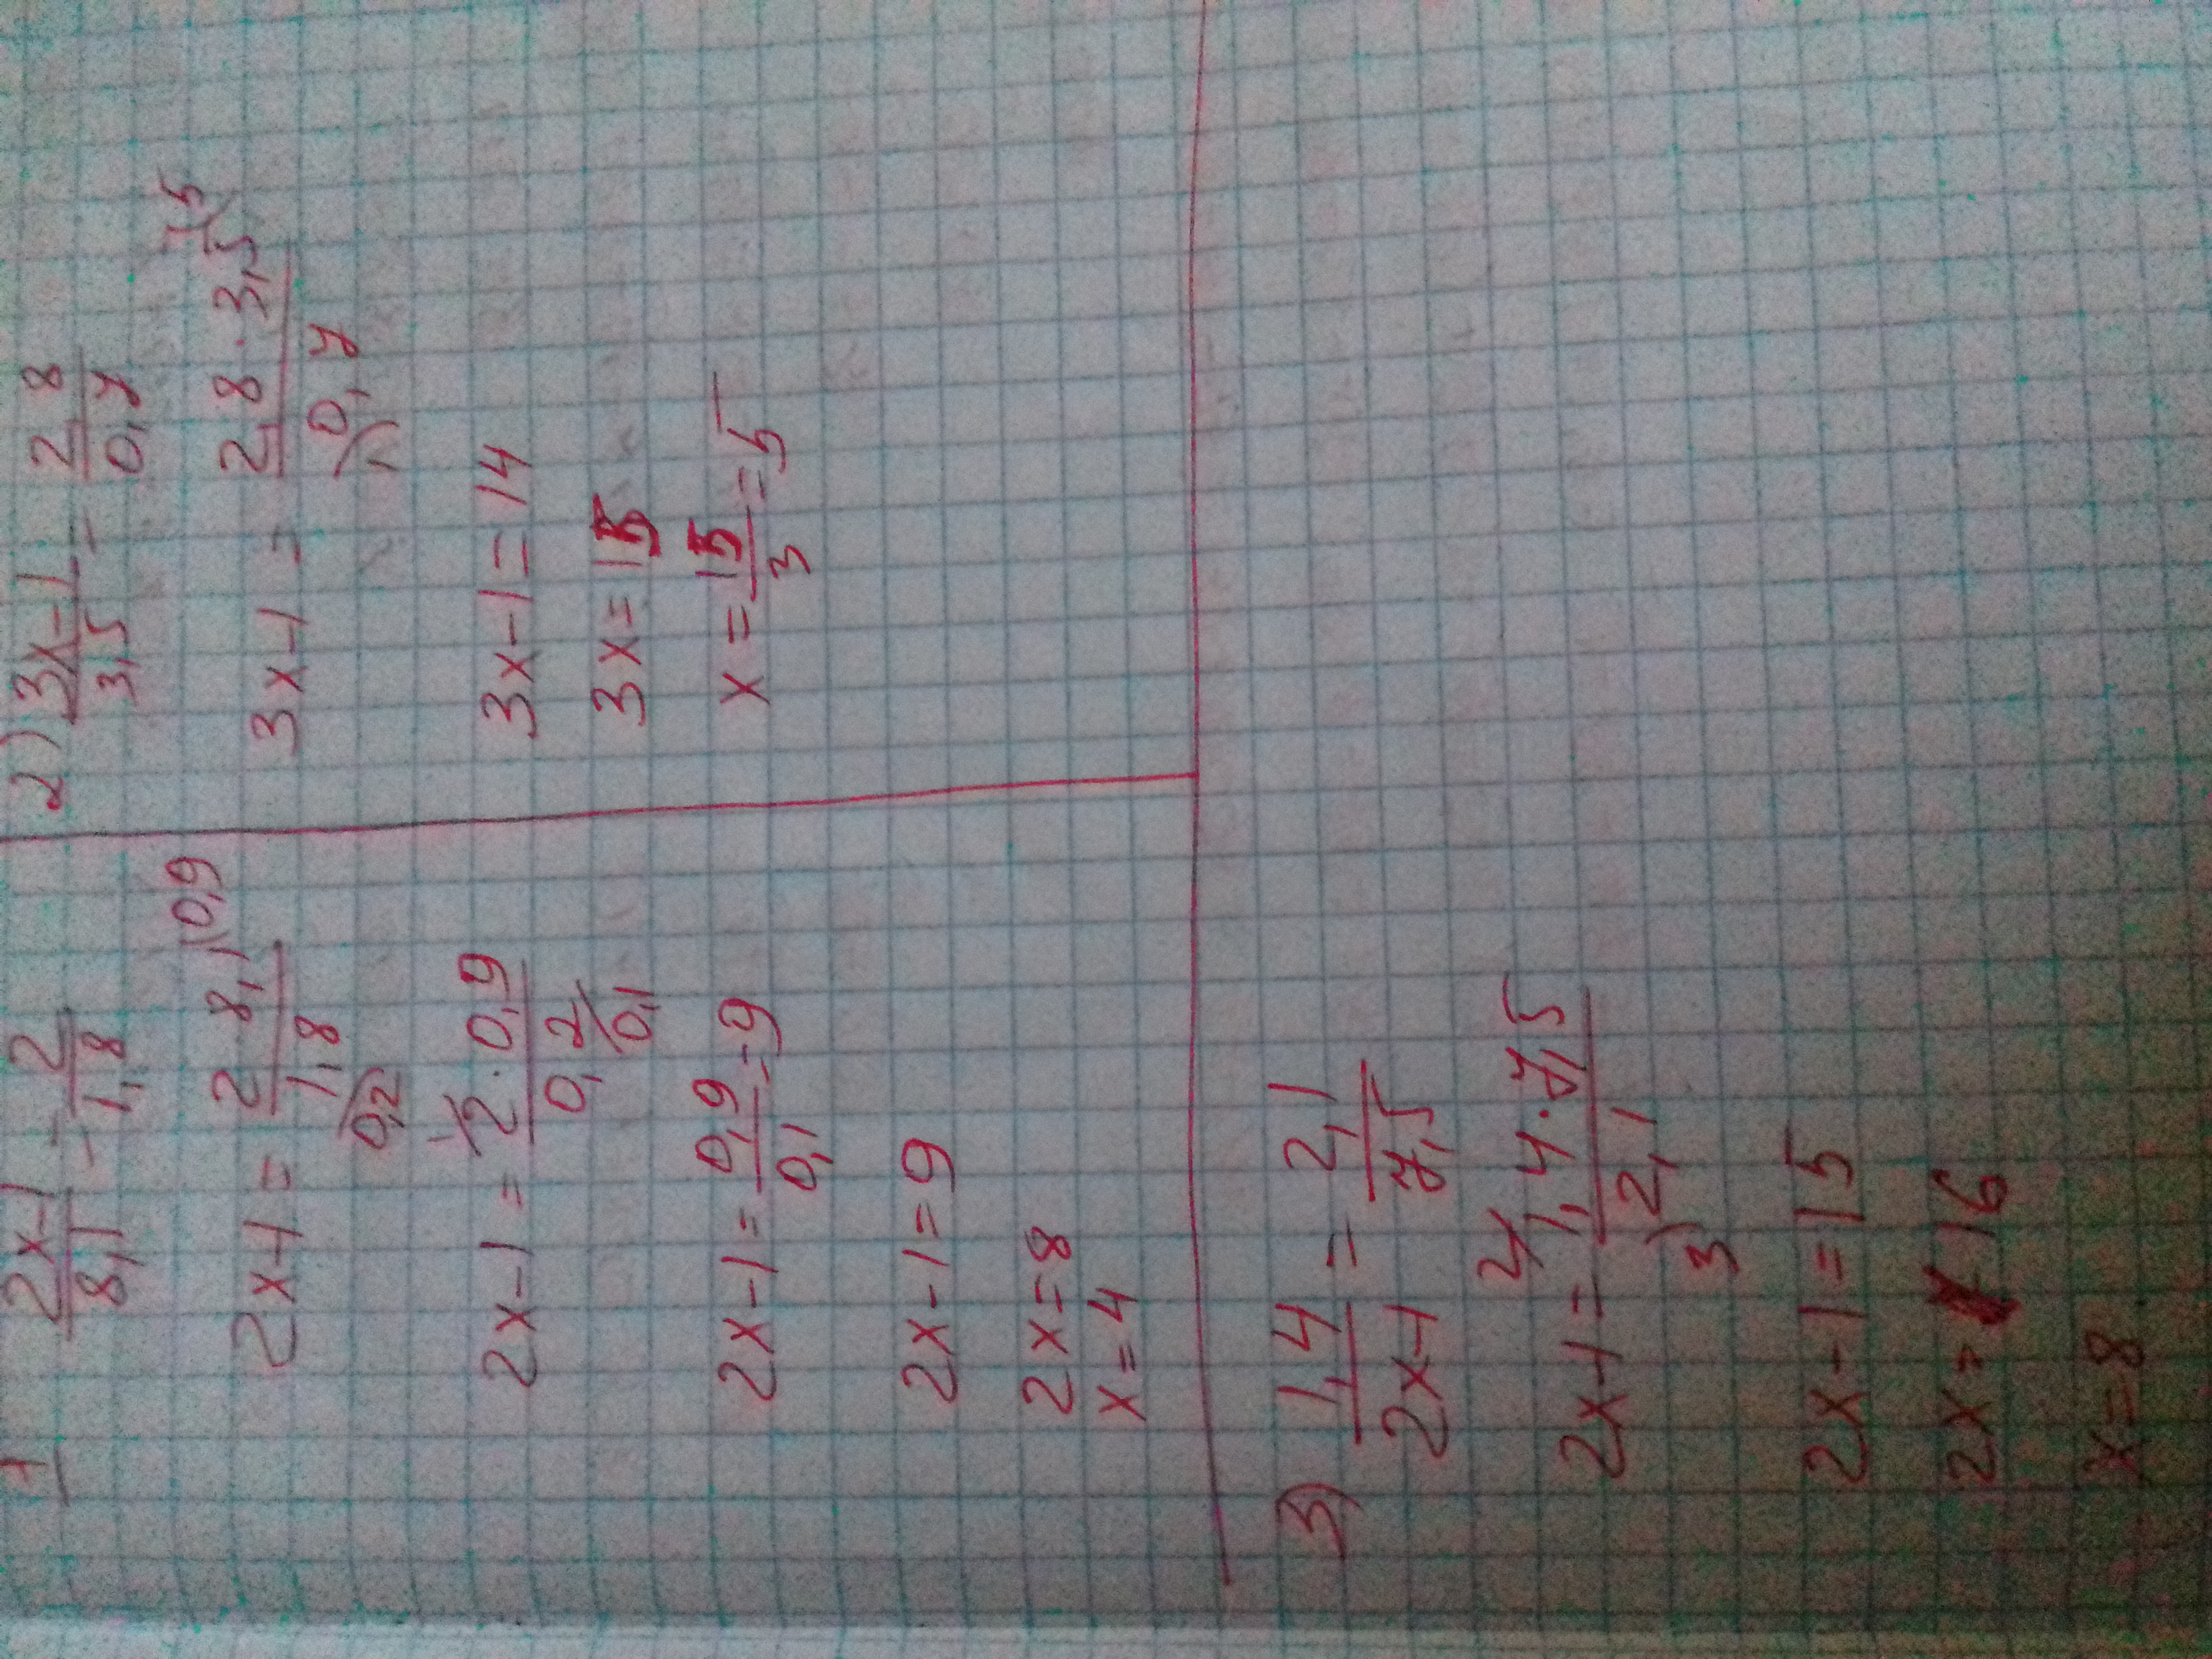 1 (2x-1)/8,1 = 2/1,8
2x-1 = (2 8,1)/1,8
0,9
0,2
2x-1 = (2·0,9)/0,2
1
0,1
2x-1 = 0,9/0,1 = 9
2x-1=9
2x=8
x=4
2) (3x-1)/3,5 = 2,8/0,7
3x-1 = (2,8·3,5)/0,7
5
1
3x-1=14
3x=15
x=15/3=5
3) 1,4/(2x-1) = 2,1/7,5
2x-1 = (1,4·7,5)/2,1
2
3
2x-1=15
2x=16
x=8